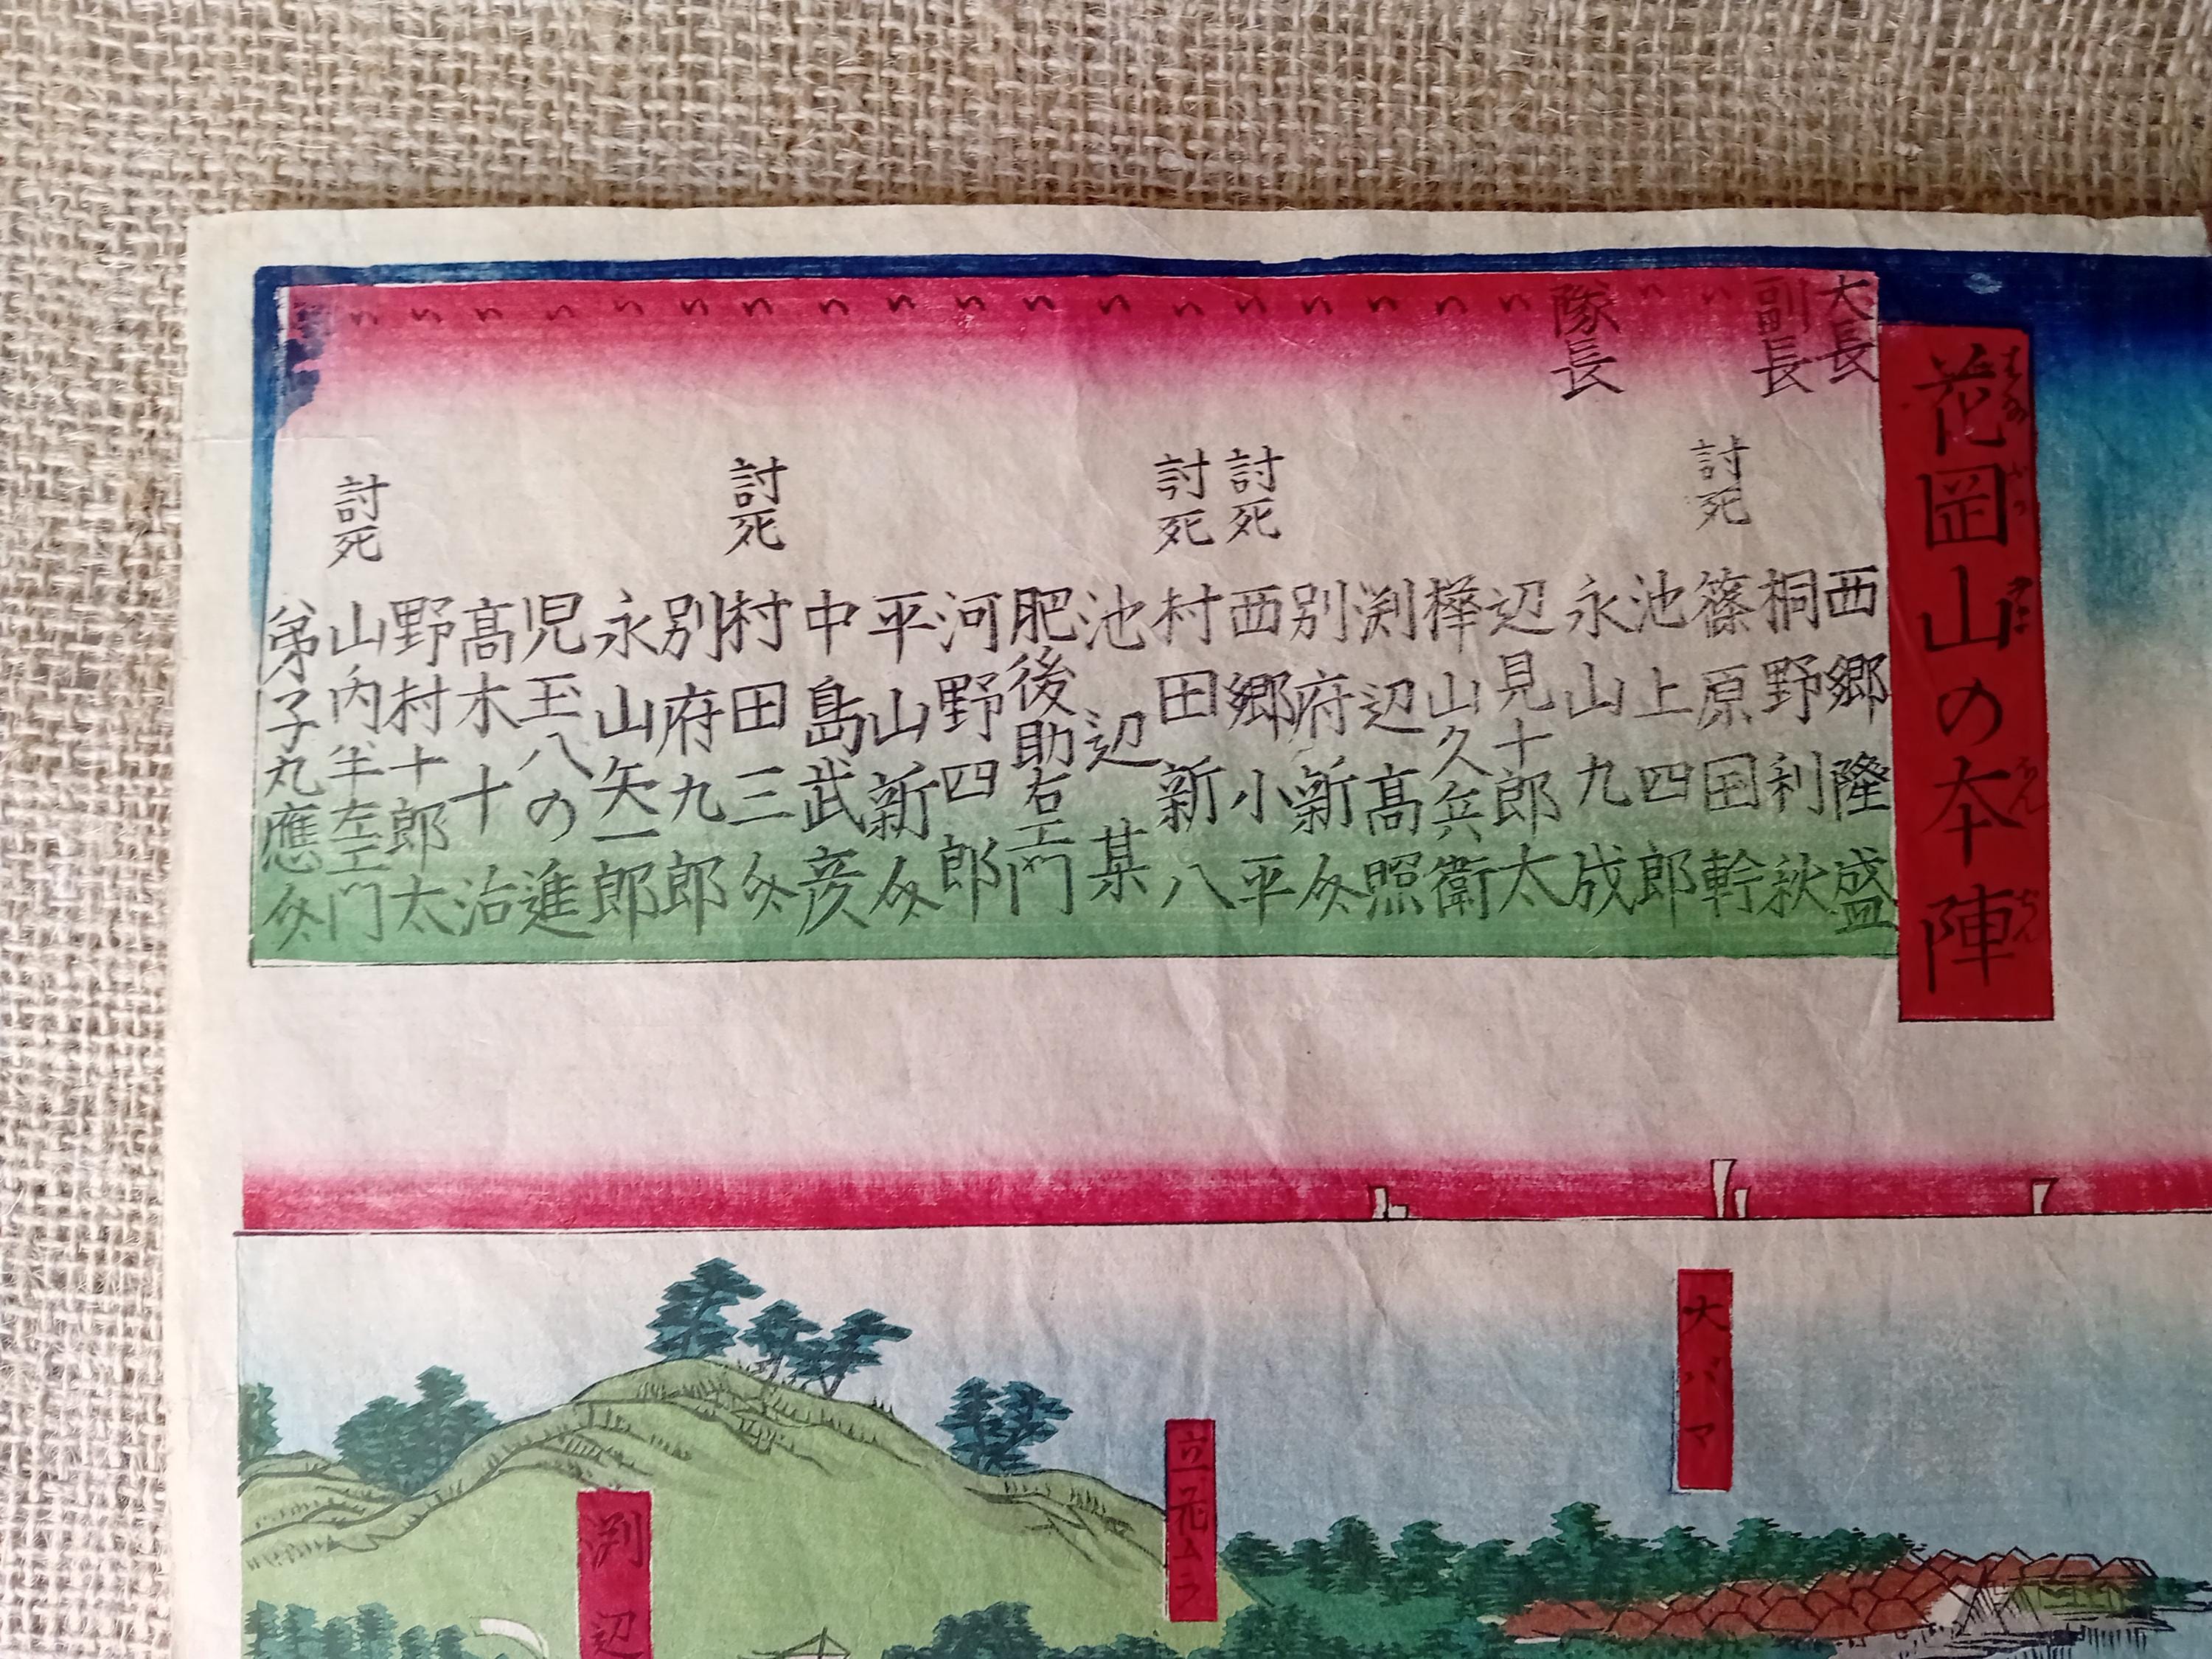 花岡山の本陣
大長 西郷隆盛
副長 桐野利秋
〃 討死 篠原国幹
〃 池上四郎
隊長 永山九成
〃 辺見十郎太
〃 樺山久兵衛
〃 渕辺髙照
〃 別府新介
〃 討死 西郷小平
〃 討死 村田新八
〃 池辺某
〃 肥後助右エ門
〃 河野四郎
〃 平山新介
〃 中島武彦
〃 討死 村田三介
〃 別府九郎
〃 永山矢一郎
〃 児玉八の進
〃 髙木十治
〃 野村十郎太
〃 討死 山内半左エ門
〃 弟子丸應介
大バマ
立花ムラ
渕辺